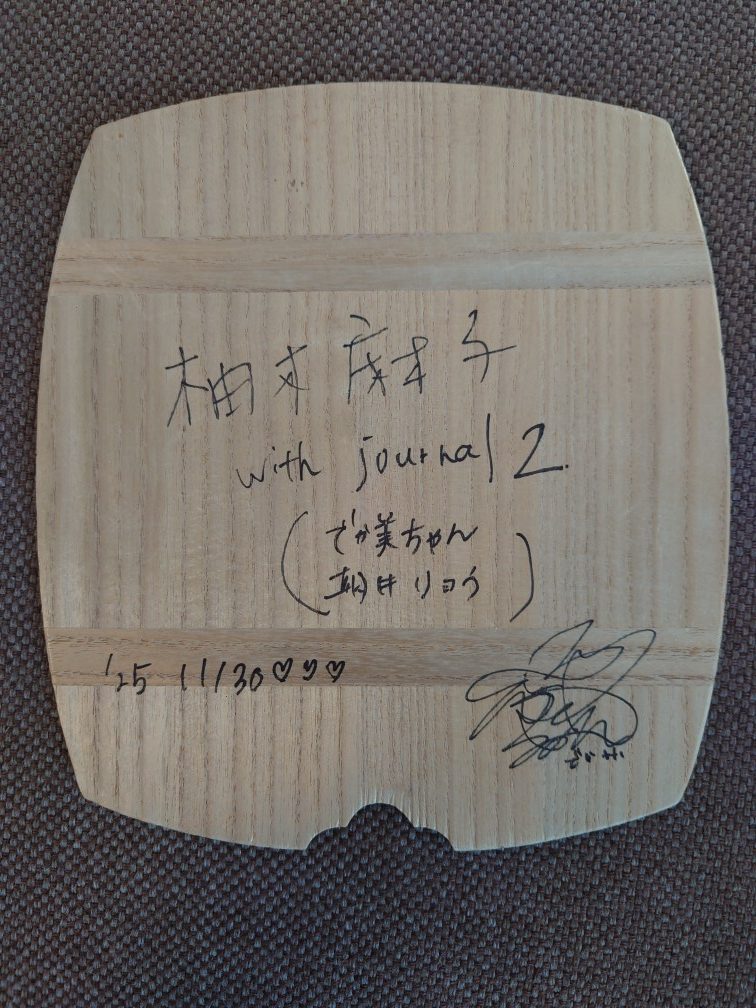 柚木麻子
with journal 2
(でか美ちゃん
朝井リョウ)
'25 11/30♡♡♡